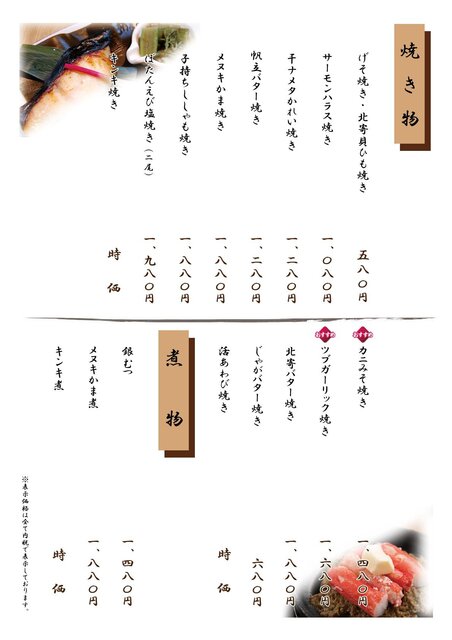 焼き物
げそ焼き・北寄貝ひも焼き 五八〇円
サーモンハラス焼き 一、〇八〇円
干ナメタかれい焼き 一、二八〇円
帆立バター焼き 一、二八〇円
メヌキかま焼き 一、八八〇円
子持ちししゃも焼き 一、八八〇円
ぼたんえび塩焼き（二尾） 一、九八〇円
キンキ焼き 時価
おすすめ カニみそ焼き 一、四八〇円
おすすめ ツブガーリック焼き 一、六八〇円
北寄バター焼き 一、八八〇円
じゃがバター焼き 六八〇円
活あわび焼き 時価
煮物
銀むつ 一、四八〇円
メヌキかま煮 一、八八〇円
キンキ煮 時価
※表示価格は全て内税で表示しております。